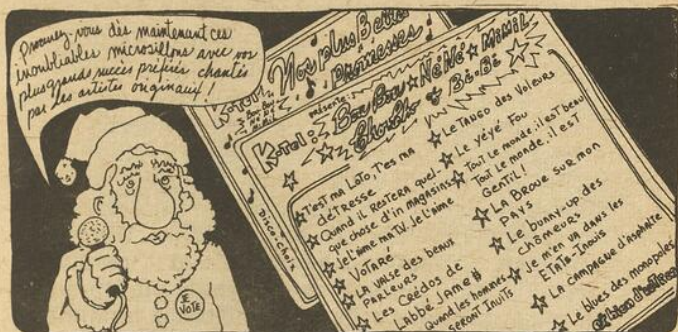 Procurez-vous dès maintenant ces
inoubliables microsillons avec vos
plus grands succès préférés chantés
par les artistes originaux !
Nos plus Belles
Promesses
K-Tol:
présente:
K-Tol: Bou Bou ☆ NéNé ☆ MiMiL
ChouChou & BéBé
☆ T'est ma Loto, T'es ma
détresse
☆ Quand il restera quel-
que chose d'in magasins
☆ Je t'aime ma TV. Je t'aime
VOTARE
☆ La valse des beaux
parleurs
☆ Les Crédos de
L'abbé James
☆ Quand les hommes
seront Inuits
☆ Le Tango des Voleurs
☆ Le yéyé Fou
☆ Tout le monde : il est beau
Tout le monde : il est
Gentil !
☆ La Broue sur mon
pays
☆ Le bunny-up des
chômeurs
☆ Je m'en va dans les
États-Inouis
☆ La campagne d'asphalte
☆ Le blues des monopoles
& bien d'autres
Disco-choix
JE
VOTE